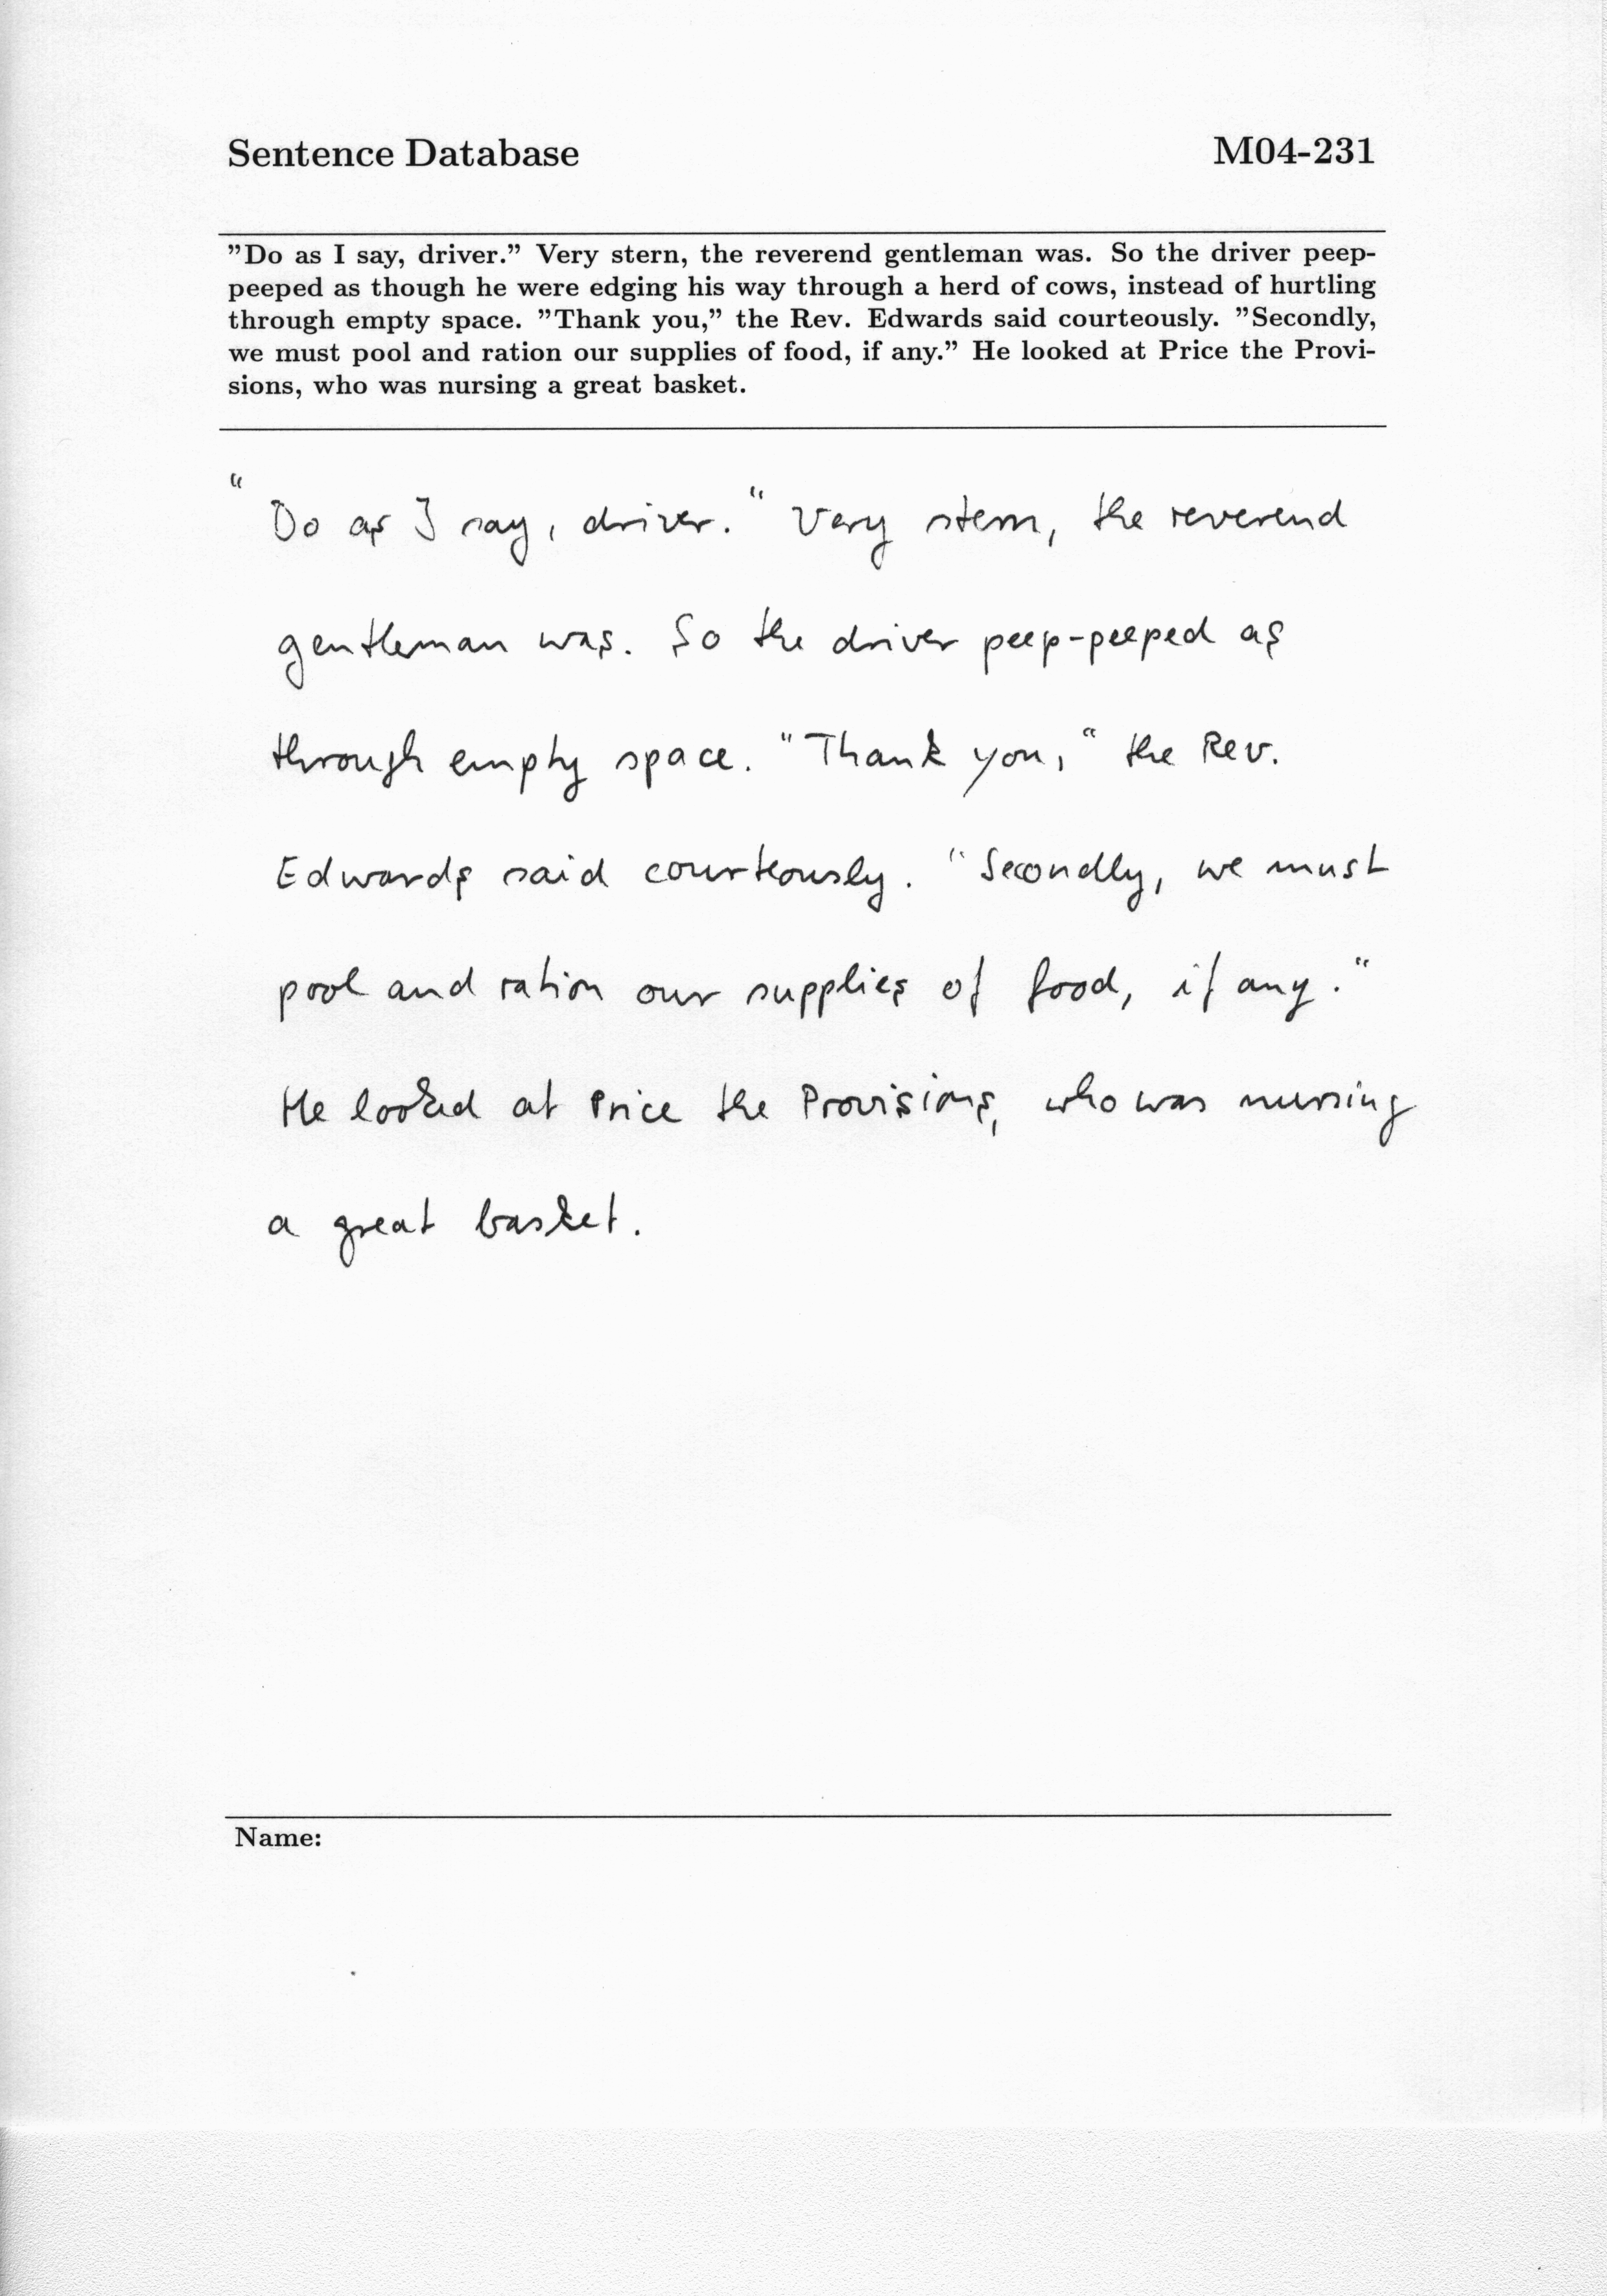 Sentence Database M04-231
"Do as I say, driver." Very stern, the reverend gentleman was. So the driver peep-
peeped as though he were edging his way through a herd of cows, instead of hurtling
through empty space. "Thank you," the Rev. Edwards said courteously. "Secondly,
we must pool and ration our supplies of food, if any." He looked at Price the Provi-
sions, who was nursing a great basket.
"Do as I say, driver." Very stern, the reverend
gentleman was. So the driver peep-peeped as
through empty space. "Thank you," the Rev.
Edwards said courteously. "Secondly, we must
pool and ration our supplies of food, if any."
He looked at Price the Provisions, who was nursing
a great basket.
Name: